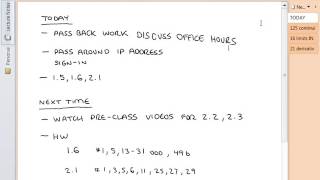 Lecture Notes
Ne...
TODAY
TODAY
125 comme
- PASS BACK WORK DISCUSS OFFICE HOURS
16 limits IN
21 derivativ
- PASS AROUND IP ADDRESS
SIGN-IN
- 1.5, 1.6, 2.1
NEXT TIME
- WATCH PRE-CLASS VIDEOS FOR 2.2, 2.3
- HW
1.6 #1, 5, 13-31 ODD, 49b
2.1 #1, 3, 5, 6, 11, 25, 27, 29